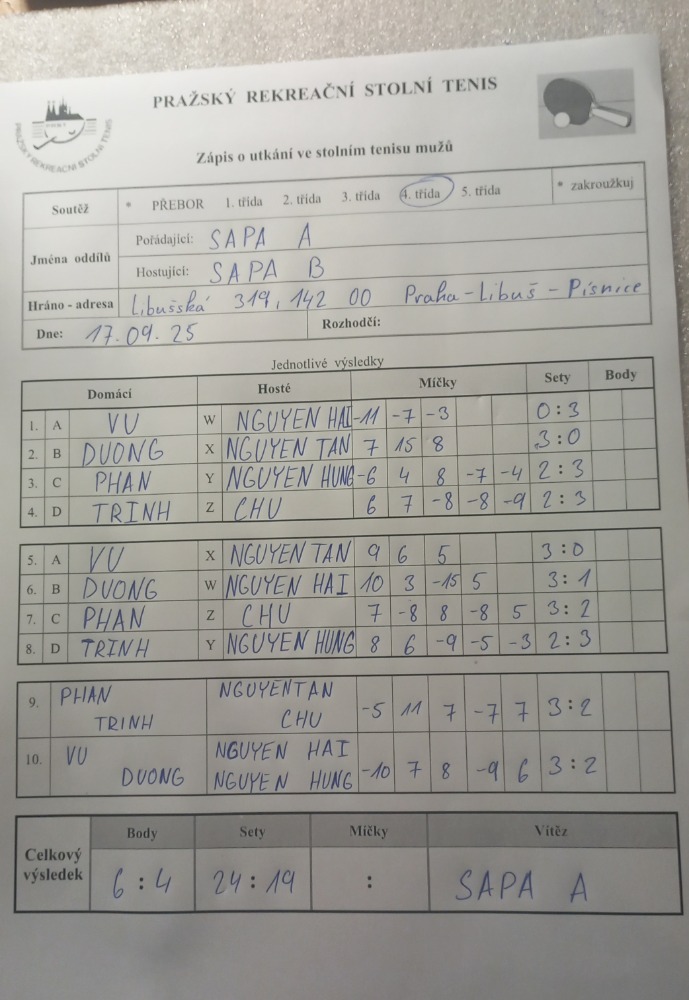 PRAŽSKÝ REKREAČNÍ STOLNÍ TENIS
PRAŽSKÝ REKREAČNÍ STOLNÍ TENIS
Zápis o utkání ve stolním tenisu mužů
Soutěž * PŘEBOR 1. třída 2. třída 3. třída 4. třída 5. třída * zakroužkuj
Jména oddílů
Pořádající: SAPA A
Hostující: SAPA B
Hráno - adresa Libušská 319, 142 00 Praha-Libuš-Písnice
Dne: 17.09.25 Rozhodčí:
Jednotlivé výsledky
Domácí Hosté Míčky Sety Body
1. A VU W NGUYEN HAI -11 -7 -3 0:3
2. B DUONG X NGUYEN TAN 7 15 8 3:0
3. C PHAN Y NGUYEN HUNG -6 4 8 -7 -4 2:3
4. D TRINH Z CHU 6 7 -8 -8 -9 2:3
5. A VU X NGUYEN TAN 9 6 5 3:0
6. B DUONG W NGUYEN HAI 10 3 -15 5 3:1
7. C PHAN Z CHU 7 -8 8 -8 5 3:2
8. D TRINH Y NGUYEN HUNG 8 6 -9 -5 -3 2:3
9. PHAN TRINH NGUYEN TAN CHU -5 11 7 -7 7 3:2
10. VU DUONG NGUYEN HAI NGUYEN HUNG -10 7 8 -9 6 3:2
Celkový výsledek
Body Sety Míčky Vítěz
6:4 24:19 : SAPA A